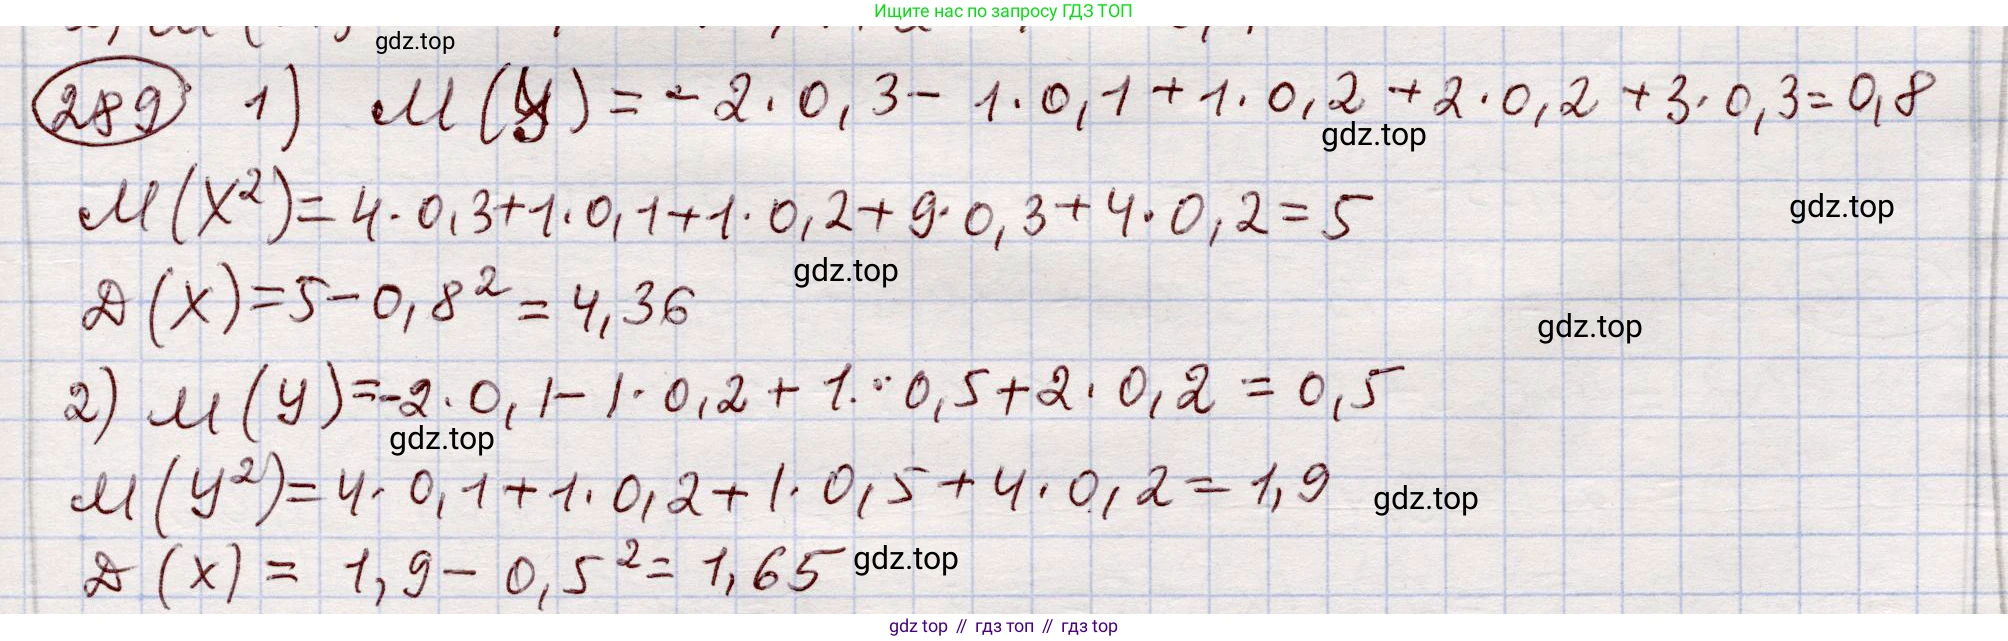 Ищите нас по запросу ГДЗ ТОП
gdz.top
289 1) M(У) = -2·0,3 - 1·0,1 + 1·0,2 + 2·0,2 + 3·0,3 = 0,8
gdz.top
M(X²) = 4·0,3+1·0,1+1·0,2+9·0,3+4·0,2 = 5
gdz.top
gdz.top
D(X) = 5 - 0,8² = 4,36
gdz.top
2) M(У) = -2·0,1 - 1·0,2 + 1·0,5 + 2·0,2 = 0,5
gdz.top
M(У²) = 4·0,1 + 1·0,2 + 1·0,5 + 4·0,2 = 1,9
gdz.top
D(X) = 1,9 - 0,5² = 1,65
gdz.top
gdz top // гдз топ // гдз top